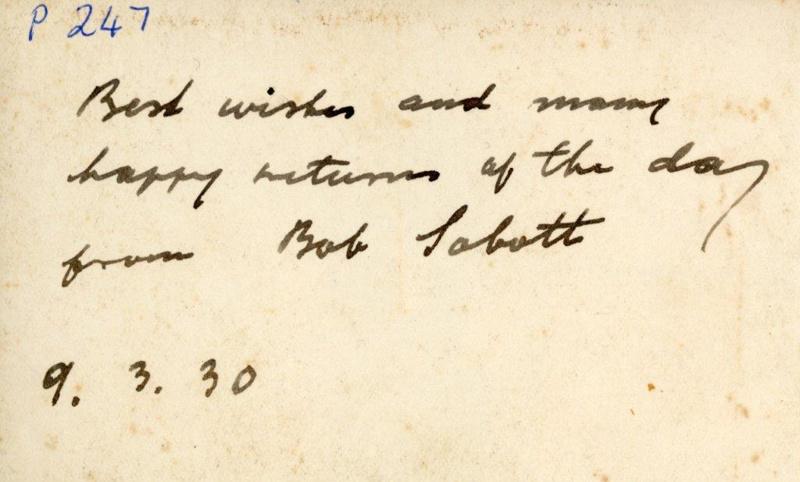 P 247
Best wishes and many
happy returns of the day
from Bob Sabott
9. 3. 30